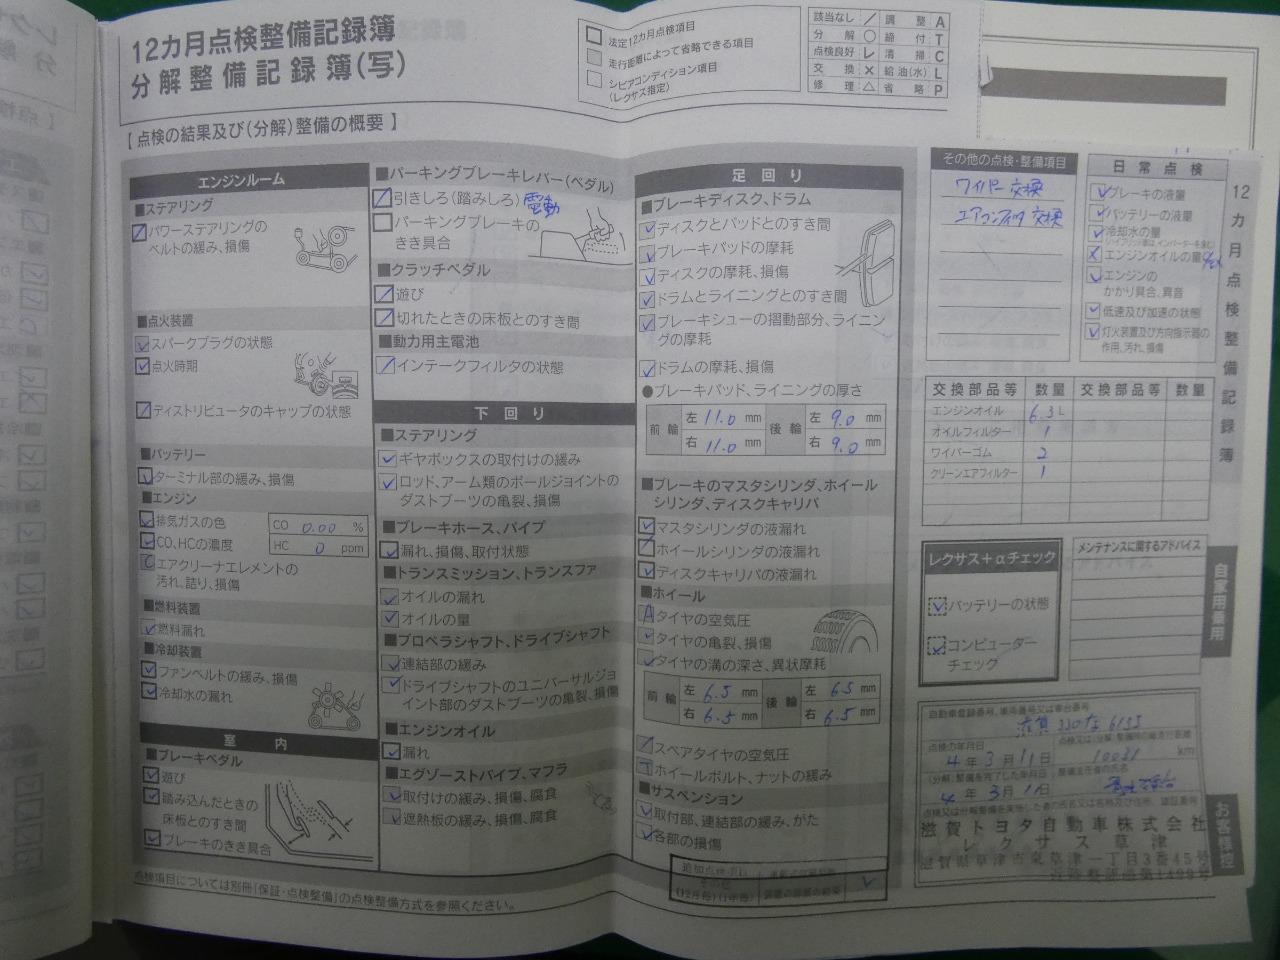 12カ月点検整備記録簿
分解整備記録簿(写)
法定12カ月点検項目
走行距離によって省略できる項目
シビアコンディション項目
(レクサス指定)
該当なし ／ 調整 A
分解 ○ 締付 T
点検良好 レ 清掃 C
交換 × 給油(水) L
修理 △ 省略 P
【 点検の結果及び(分解)整備の概要 】
エンジンルーム
■ステアリング
パワーステアリングの
ベルトの緩み、損傷
■点火装置
スパークプラグの状態
点火時期
ディストリビュータのキャップの状態
■バッテリー
ターミナル部の緩み、損傷
■エンジン
排気ガスの色
CO 0.00 %
CO、HCの濃度
HC 0 ppm
エアクリーナエレメントの
汚れ、詰り、損傷
■燃料装置
燃料漏れ
■冷却装置
ファンベルトの緩み、損傷
冷却水の漏れ
室内
■ブレーキペダル
遊び
踏み込んだときの
床板とのすき間
ブレーキのきき具合
■パーキングブレーキレバー(ペダル)
引きしろ(踏みしろ) 電動
パーキングブレーキの
きき具合
■クラッチペダル
遊び
切れたときの床板とのすき間
■動力用主電池
インテークフィルタの状態
下回り
■ステアリング
ギヤボックスの取付けの緩み
ロッド、アーム類のボールジョイントの
ダストブーツの亀裂、損傷
■ブレーキホース、パイプ
漏れ、損傷、取付状態
■トランスミッション、トランスファ
オイルの漏れ
オイルの量
■プロペラシャフト、ドライブシャフト
連結部の緩み
ドライブシャフトのユニバーサルジョ
イント部のダストブーツの亀裂、損傷
■エンジンオイル
漏れ
■エグゾーストパイプ、マフラ
取付けの緩み、損傷、腐食
遮熱板の緩み、損傷、腐食
足回り
■ブレーキディスク、ドラム
ディスクとパッドとのすき間
ブレーキパッドの摩耗
ディスクの摩耗、損傷
ドラムとライニングとのすき間
ブレーキシューの摺動部分、ライニン
グの摩耗
ドラムの摩耗、損傷
●ブレーキパッド、ライニングの厚さ
前輪 左 11.0 mm 後輪 左 9.0 mm
右 11.0 mm 右 9.0 mm
■ブレーキのマスタシリンダ、ホイール
シリンダ、ディスクキャリパ
マスタシリンダの液漏れ
ホイールシリンダの液漏れ
ディスクキャリパの液漏れ
■ホイール
A タイヤの空気圧
タイヤの亀裂、損傷
タイヤの溝の深さ、異状摩耗
前輪 左 6.5 mm 後輪 左 6.5 mm
右 6.5 mm 右 6.5 mm
スペアタイヤの空気圧
T ホイールボルト、ナットの緩み
■サスペンション
取付部、連結部の緩み、がた
各部の損傷
追加点検項目
その他
その他の点検・整備項目
ワイパー交換
エアコンフィルタ交換
日常点検
ブレーキの液量
バッテリーの液量
冷却水の量
エンジンオイルの量
エンジンの
かかり具合、異音
低速及び加速の状態
灯火装置及び方向指示器の
作用、汚れ、損傷
交換部品等 数量 交換部品等 数量
エンジンオイル 6.3L
オイルフィルター 1
ワイパーゴム 2
クリーンエアフィルター 1
レクサス+αチェック
バッテリーの状態
コンピューター
チェック
メンテナンスに関するアドバイス
自動車登録番号、車両番号又は車台番号
滋賀 330
点検の年月日
4年3月11日
km
(分解)整備を完了した年月日
4年3月11日
点検又は分解整備を実施した者の氏名又は名称及び住所、認証番号
滋賀トヨタ自動車株式会社
レクサス草津
滋賀県草津市東草津一丁目3番45号
12カ月点検整備記録簿
自家用乗用
お客様控
点検項目については別冊「保証・点検整備」の点検整備方式を参照ください。